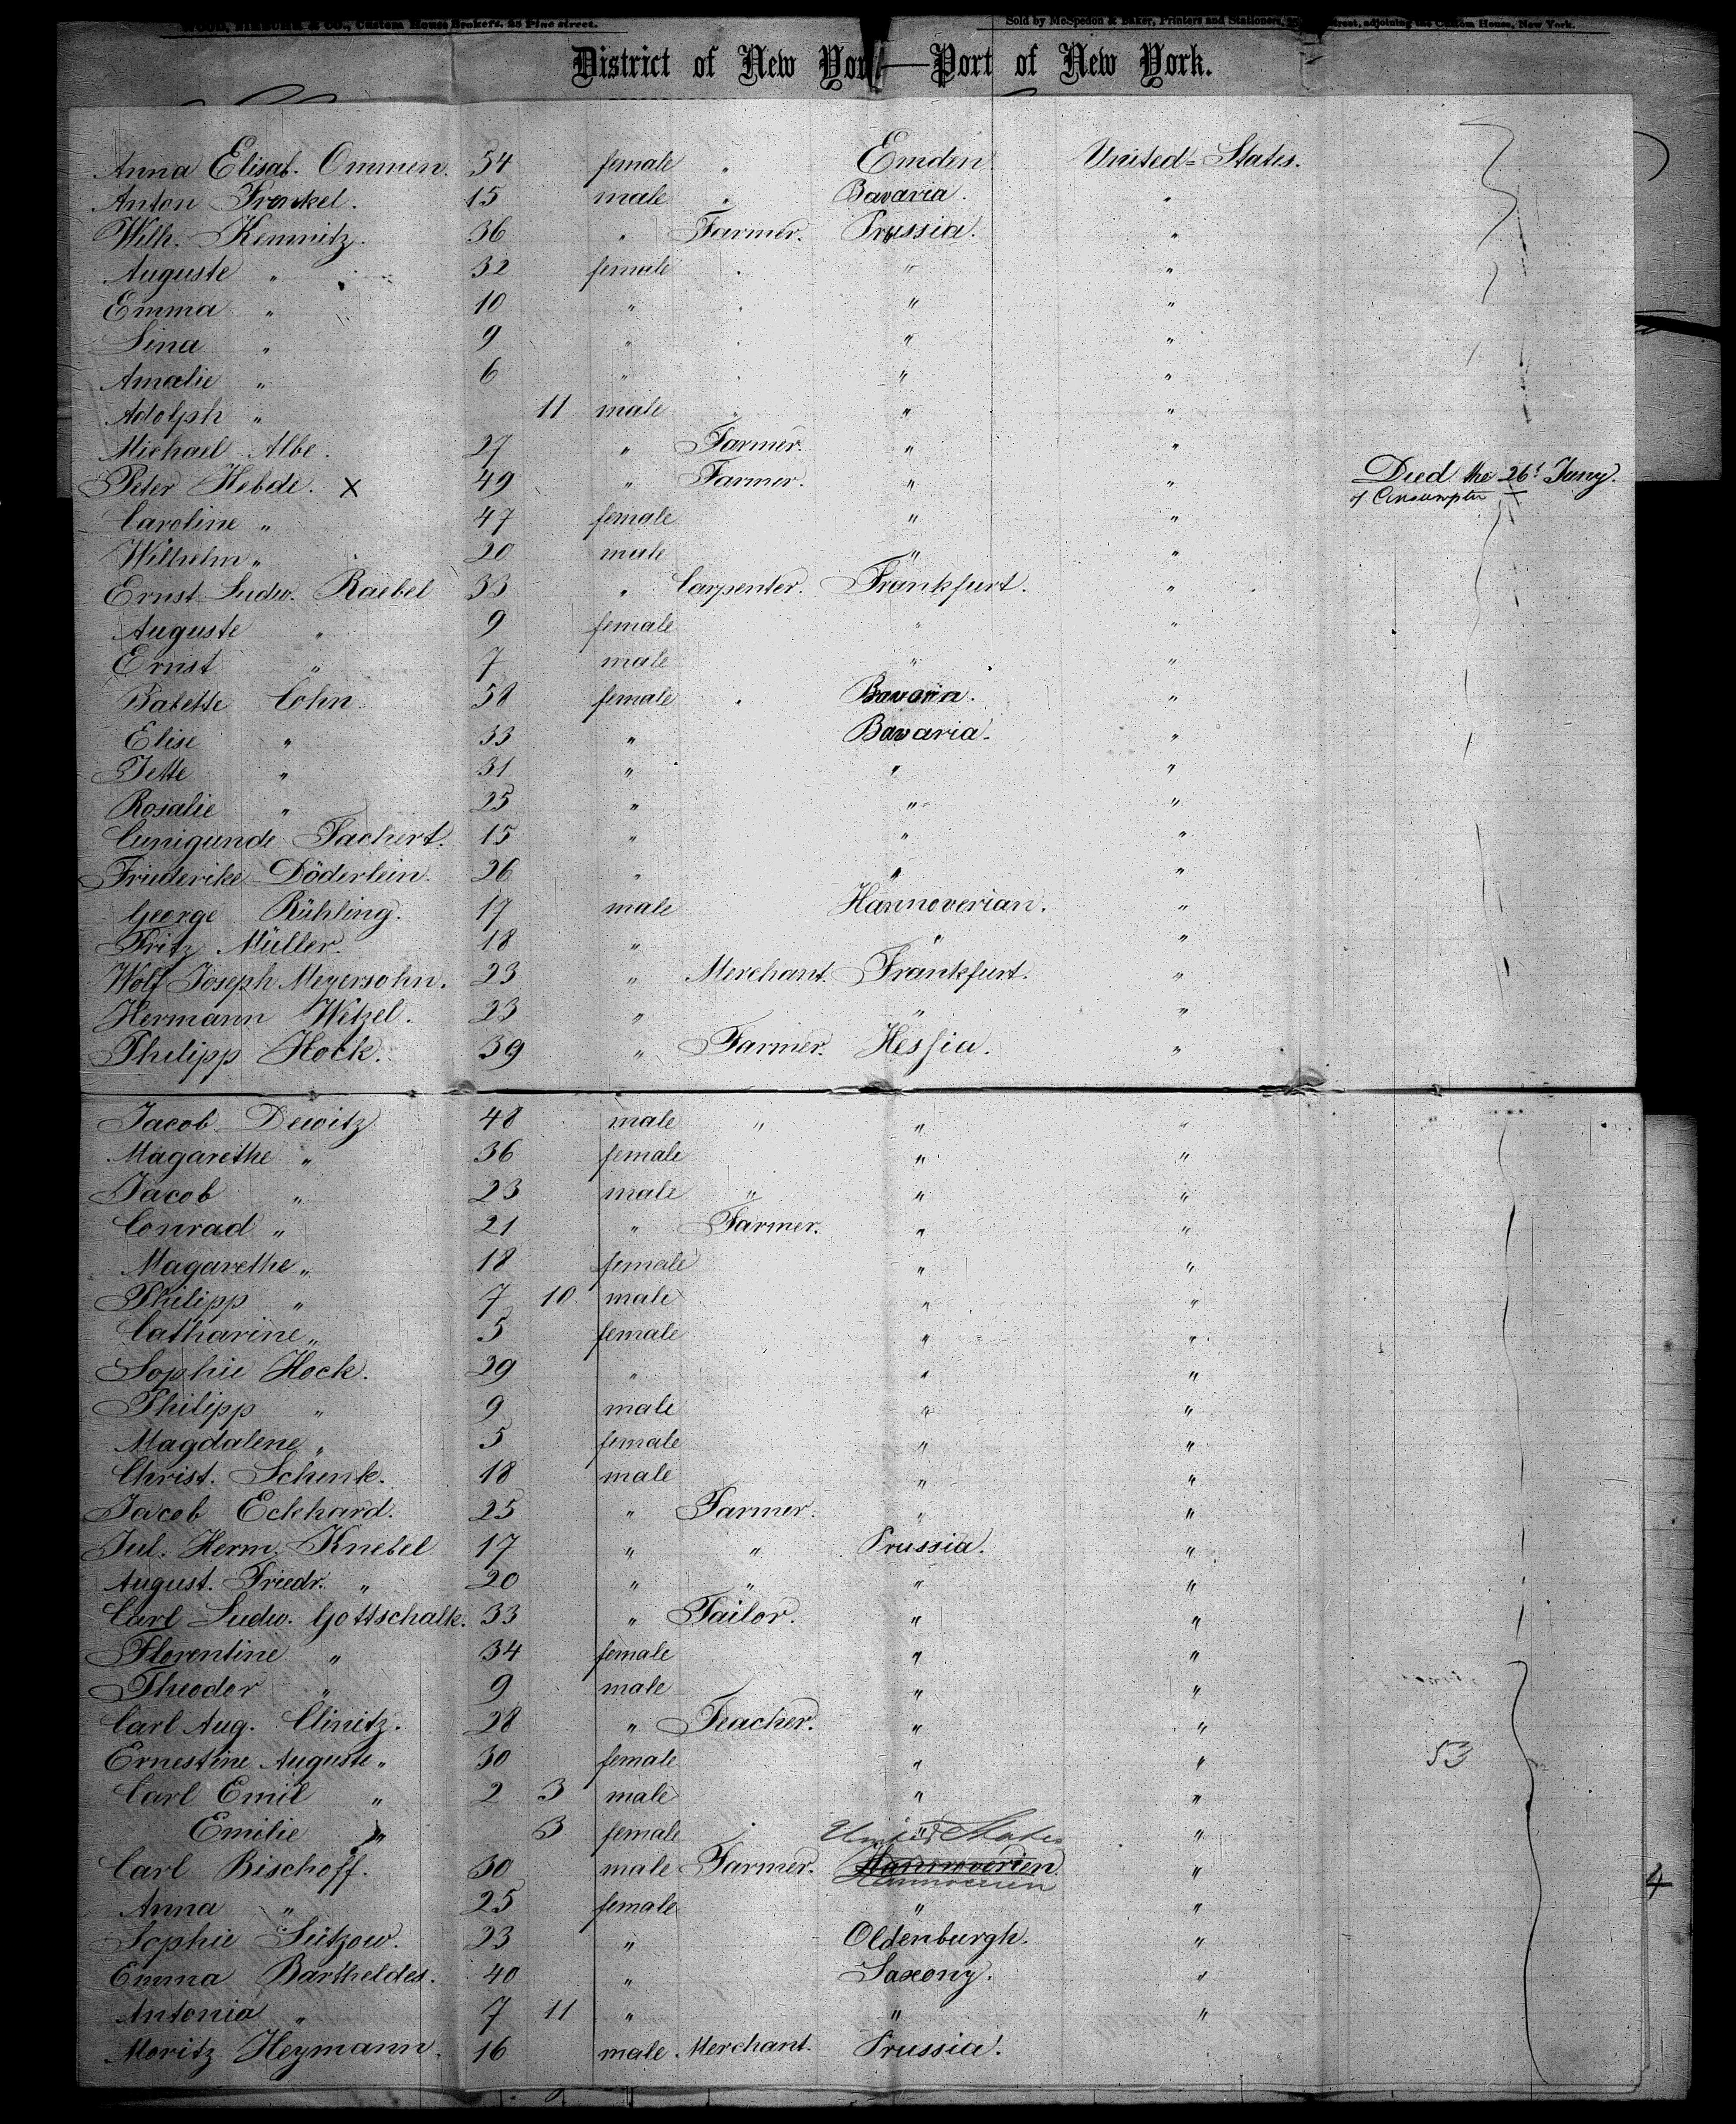 & Co., Custom House Brokers, 25 Pine street.
Sold by McSpedon & Baker, Printers and Stationers, street, adjoining the Custom House, New York.
District of New York—Port of New York.
Anna Elisab. Ommen. 54 female " Emden United-States.
Anton Frankel. 15 male " Bavaria. "
Wilh. Kemnitz. 36 " Farmer. Prussia. "
Auguste " 32 female " " "
Emma " 10 " " " "
Lina " 9 " " " "
Amalie " 6 " " " "
Adolph " 11 male " " "
Michael Albe. 27 " Farmer. " "
Peter Hebde. X 49 " Farmer. " " Died the 26t Juny.
of Consumption
Caroline " 47 female " "
Wilhelm " 20 male " "
Ernst Ludw. Raebel 33 " Carpenter. Frankfurt. "
Auguste " 9 female " "
Ernst " 7 male " "
Babette Cohn. 58 female " Bavaria. "
Elise " 33 " Bavaria. "
Jette " 31 " " "
Rosalie " 25 " " "
Cunigunde Tachert. 15 " " "
Friederike Döderlein. 26 " " "
George Rühling. 17 male Hannoverian. "
Fritz Müller. 18 " " "
Wolf Joseph Meyersohn. 23 " Merchant. Frankfurt. "
Hermann Wetzel. 23 " " "
Philipp Hock. 39 " Farmer. Hessia. "
Jacob Dewitz 48 male " " "
Magarethe " 36 female " "
Jacob " 23 male " " "
Conrad " 21 " Farmer. " "
Magarethe " 18 female " "
Philipp " 7 10. male " "
Catharine " 5 female " "
Sophie Hock. 29 " " "
Philipp " 9 male " "
Magdalene " 5 female " "
Christ. Schenk. 18 male " "
Jacob Eckhard. 25 " Farmer. " "
Jul. Herm. Knebel 17 " " Prussia. "
August. Friedr. " 20 " " " "
Carl Ludw. Gottschalk. 33 " Tailor. " "
Florentine " 34 female " "
Theodor " 9 male " "
Carl Aug. Clinitz. 28 " Teacher. " "
Ernestine Auguste " 30 female " " 53
Carl Emil " 2 3 male " "
Emilie " 3 female United States "
Carl Bischoff. 30 male Farmer. Hannoverien "
Hannoverien
Anna " 25 female " " 4
Sophie Lützow. 23 " Oldenburgh. "
Emma Bartheldes. 40 " Saxony. "
Antonia " 7 11 " " "
Moritz Heymann. 16 male Merchant. Prussia.